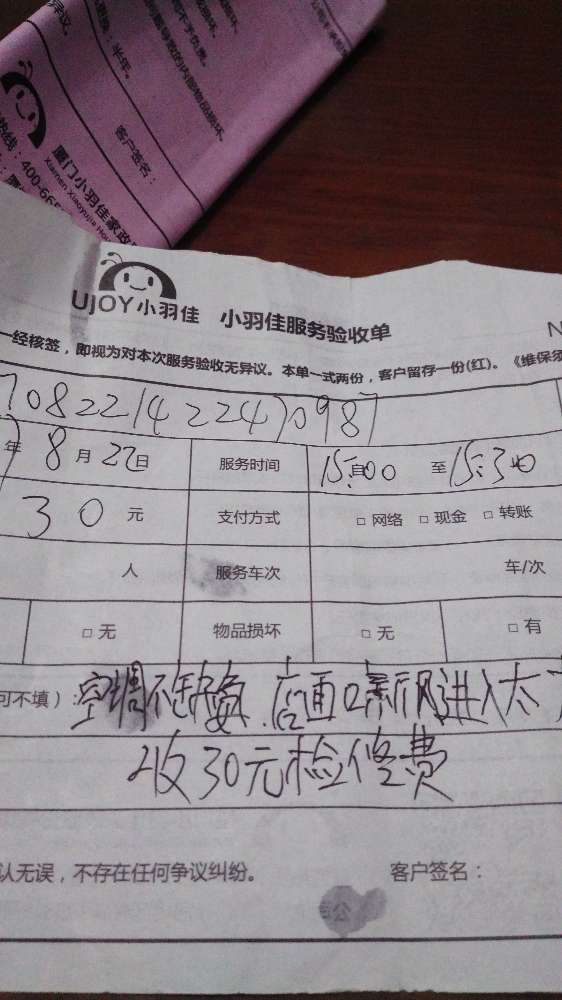 半年。
客户签名：
热线：400-66
厦门小羽佳家政
UJOY小羽佳 小羽佳服务验收单
一经核签，即视为对本次服务验收无异议。本单一式两份，客户留存一份(红)。《维保须
70822142247098
年 8 月 22 日 服务时间 15:00 至 15:30
30 元 支付方式 □ 网络 □ 现金 □ 转账
人 服务车次 车/次
□ 无 物品损坏 □ 无 □ 有
可不填）：空调不缺氟．店面口新风进入太
收30元检修费
认无误，不存在任何争议纠纷。 客户签名：